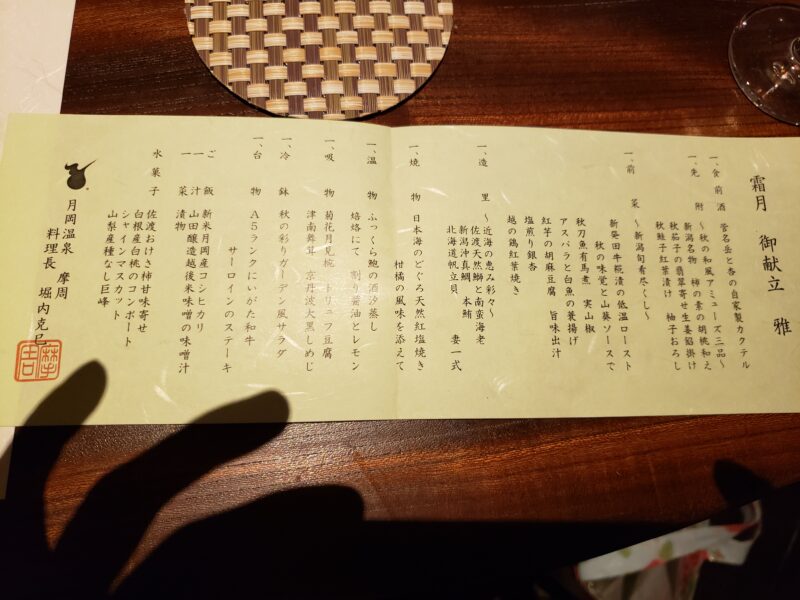 霜月 御献立 雅
一、食前酒 菅名岳と杏の自家製カクテル
一、先附 ～秋の和風アミューズ三品～
新潟名物 柿の素の胡桃和え
秋茄子の翡翠寄せ生姜餡掛け
秋鮭子紅葉漬け 柚子おろし
一、前菜 ～新潟旬肴尽くし～
新発田牛糀漬の低温ロースト
秋の味覚と山葵ソースで
秋刀魚有馬煮 実山椒
アスパラと白魚の兼揚げ
紅芋の胡麻豆腐 旨味出汁
塩煎り銀杏
越の鶏紅葉焼き
一、造里 ～近海の恵み彩々～
佐渡天然鰤と南蛮海老
新潟沖真鯛 本鮪
北海道帆立貝 妻一式
一、焼物 日本海のどぐろ天然紅塩焼き
柑橘の風味を添えて
一、温物 ふっくら鮑の酒汐蒸し
焙烙にて 割り醤油とレモン
一、吸物 菊花月見椀 トリュフ豆腐
津南舞茸 京丹波大黒しめじ
一、冷鉢 秋の彩りガーデン風サラダ
一、台物 A5ランクにいがた和牛
サーロインのステーキ
ご飯 新米月岡産コシヒカリ
一汁 山田醸造越後米味噌の味噌汁
一菜 漬物
水菓子 佐渡おけさ柿甘味寄せ
白根産白桃のコンポート
シャインマスカット
山梨産種なし巨峰
月岡温泉 摩周
料理長 堀内克巳